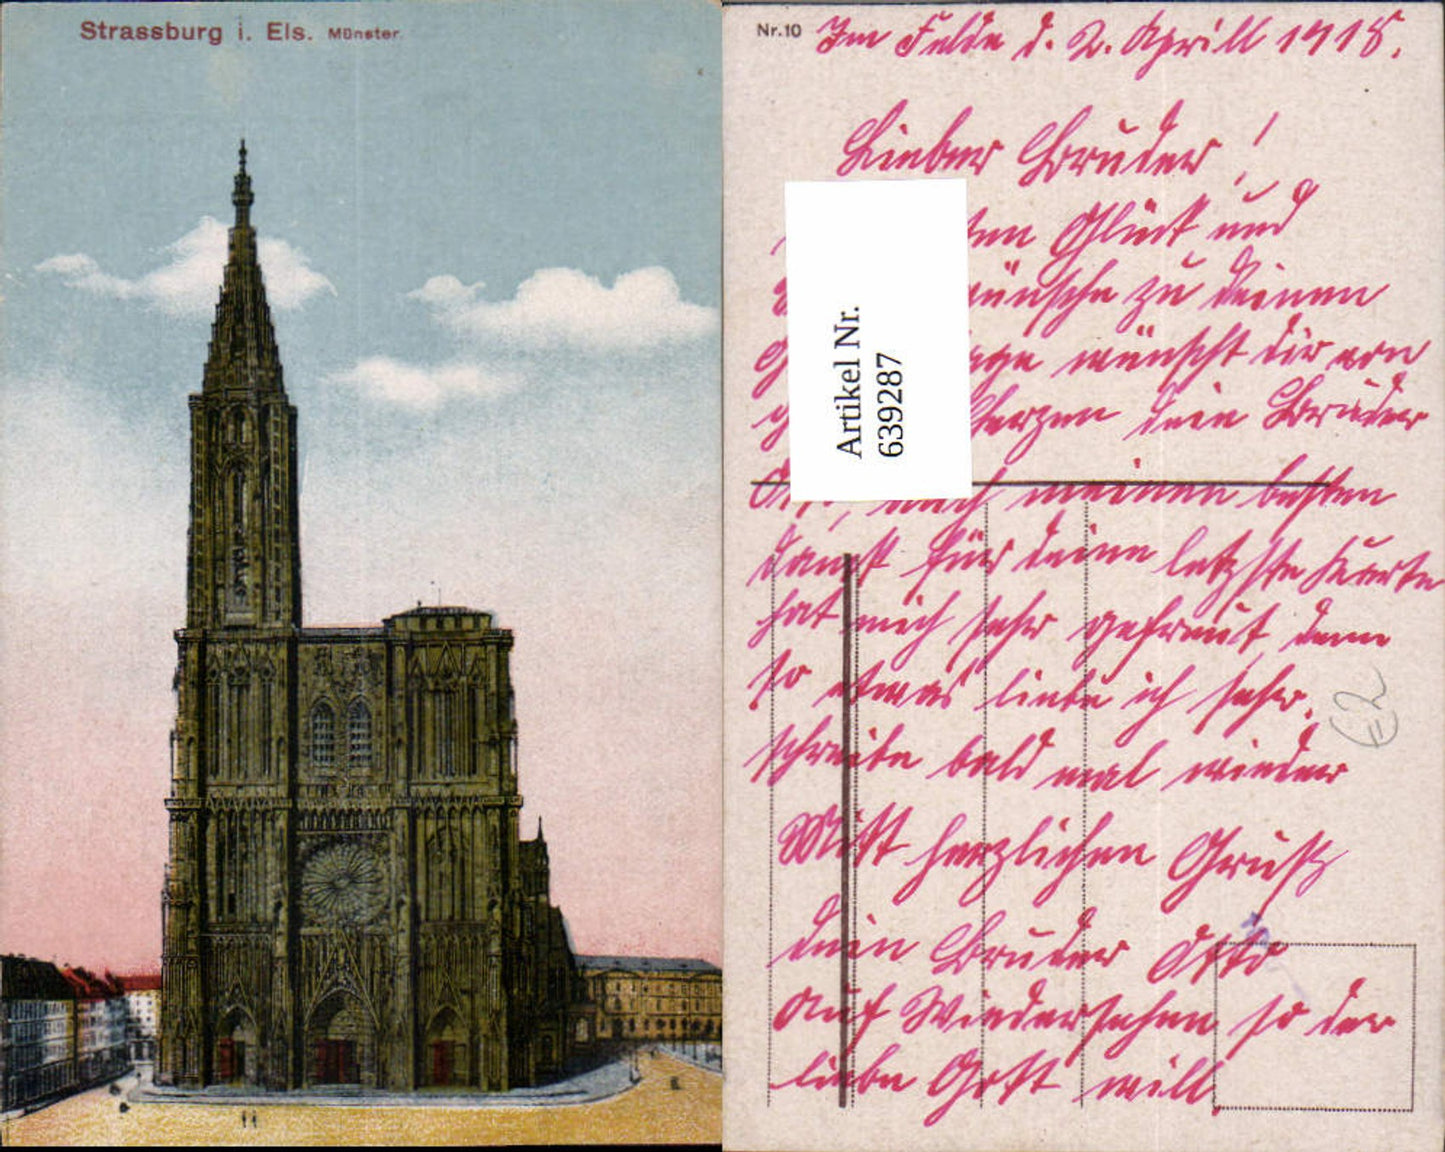 Strassburg i. Els. Münster
Nr. 10
Im Felde d. 2. Aprill 1918.
Lieber Bruder!
ten Glück und
wünsche zu deinem
age wünscht dir von
Herzen dein Bruder
Otto, auch meinen besten
Dank für deine letzte Karte
hat mich sehr gefreut, denn
so etwas liebe ich sehr.
schreibe bald mal wieder
Mit herzlichen Gruß
dein Bruder Otto
Auf Wiedersehen so der
liebe Gott will.
Artikel Nr.
639287